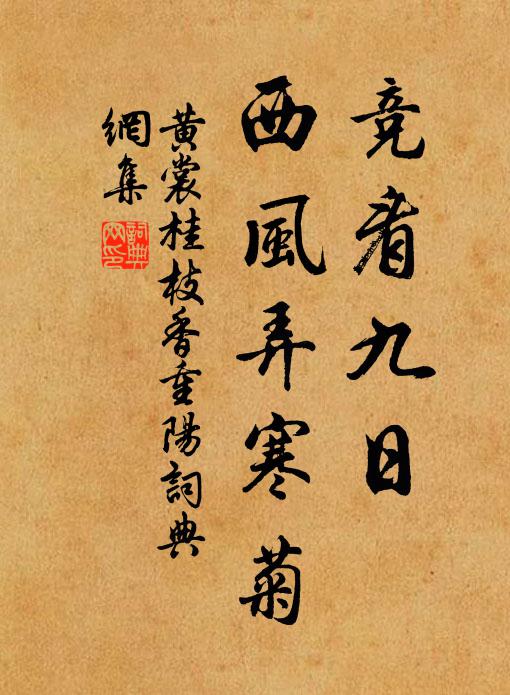 竞看九日
西風弄寒菊
黄裳桂枝香重陽詞典
網集
詞典
网印